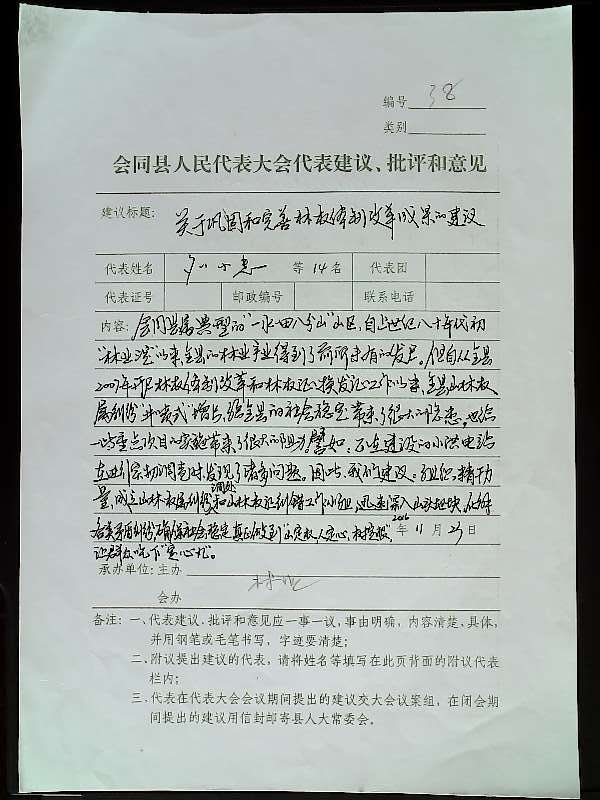 编号 38
类别
会同县人民代表大会代表建议、批评和意见
建议标题: 关于巩固和完善林权体制改革成果的建议
代表姓名 等14名 代表团
代表证号 邮政编号 联系电话
内容: 会同县属典型的"一水一田八分山"山区,自上世纪八十年代初
"林业三定"以来,全县的林业产业得到了前所未有的发展。但自从全县
2007年开展林权体制改革和林权证换发证工作以来,全县山林权
属纠纷"井喷式"增占,给全县的社会稳定带来了很大的隐患,也给
一些重点项目的实施带来了很大的阻力。譬如:正在建设的小洪电站
在进行实物调查时,发现了诸多问题。因此,我们建议:组织精干力
量,成立山林权属纠纷调处和山林权证纠错工作小组,迅速深入山头地块,化解
各类矛盾纠纷,确保社会稳定,真正做到"山定权、人定心、树定根",
2016年11月23日
让群众吃下"定心丸"。
承办单位: 主办 林业
会办
备注: 一、代表建议、批评和意见应一事一议,事由明确,内容清楚、具体,
并用钢笔或毛笔书写,字迹要清楚;
二、附议提出建议的代表,请将姓名等填写在此页背面的附议代表
栏内;
三、代表在代表大会会议期间提出的建议交大会议案组,在闭会期
间提出的建议用信封邮寄县人大常委会。